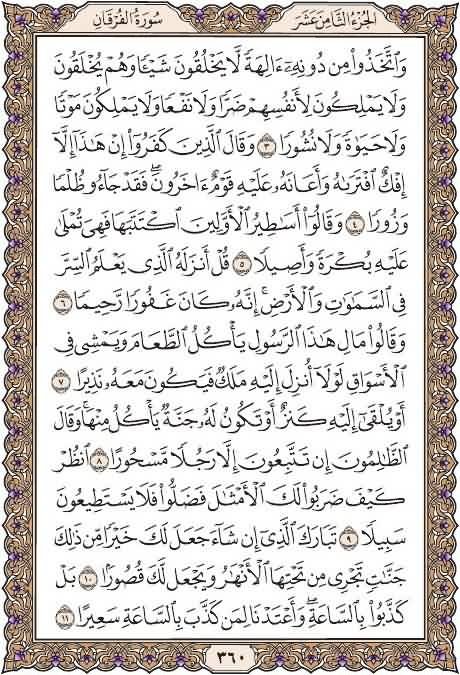 الجُزءُ الثَّامِنَ عَشَرَ
سُورَةُ الفُرقَانِ
وَٱتَّخَذُوا۟ مِن دُونِهِۦٓ ءَالِهَةً لَّا يَخْلُقُونَ شَيْـًٔا وَهُمْ يُخْلَقُونَ
وَلَا يَمْلِكُونَ لِأَنفُسِهِمْ ضَرًّا وَلَا نَفْعًا وَلَا يَمْلِكُونَ مَوْتًا
وَلَا حَيَوٰةً وَلَا نُشُورًا ٣ وَقَالَ ٱلَّذِينَ كَفَرُوٓا۟ إِنْ هَـٰذَآ إِلَّآ
إِفْكٌ ٱفْتَرَىٰهُ وَأَعَانَهُۥ عَلَيْهِ قَوْمٌ ءَاخَرُونَ ۖ فَقَدْ جَآءُو ظُلْمًا
وَزُورًا ٤ وَقَالُوٓا۟ أَسَـٰطِيرُ ٱلْأَوَّلِينَ ٱكْتَتَبَهَا فَهِىَ تُمْلَىٰ
عَلَيْهِ بُكْرَةً وَأَصِيلًا ٥ قُلْ أَنزَلَهُ ٱلَّذِى يَعْلَمُ ٱلسِّرَّ
فِى ٱلسَّمَـٰوَٰتِ وَٱلْأَرْضِ ۚ إِنَّهُۥ كَانَ غَفُورًا رَّحِيمًا ٦
وَقَالُوا۟ مَالِ هَـٰذَا ٱلرَّسُولِ يَأْكُلُ ٱلطَّعَامَ وَيَمْشِى فِى
ٱلْأَسْوَاقِ ۙ لَوْلَآ أُنزِلَ إِلَيْهِ مَلَكٌ فَيَكُونَ مَعَهُۥ نَذِيرًا ٧
أَوْ يُلْقَىٰٓ إِلَيْهِ كَنزٌ أَوْ تَكُونُ لَهُۥ جَنَّةٌ يَأْكُلُ مِنْهَا ۚ وَقَالَ
ٱلظَّـٰلِمُونَ إِن تَتَّبِعُونَ إِلَّا رَجُلًا مَّسْحُورًا ٨ ٱنظُرْ
كَيْفَ ضَرَبُوا۟ لَكَ ٱلْأَمْثَـٰلَ فَضَلُّوا۟ فَلَا يَسْتَطِيعُونَ
سَبِيلًا ٩ تَبَارَكَ ٱلَّذِىٓ إِن شَآءَ جَعَلَ لَكَ خَيْرًا مِّن ذَٰلِكَ
جَنَّـٰتٍ تَجْرِى مِن تَحْتِهَا ٱلْأَنْهَـٰرُ وَيَجْعَل لَّكَ قُصُورًۢا ١٠ بَلْ
كَذَّبُوا۟ بِٱلسَّاعَةِ ۖ وَأَعْتَدْنَا لِمَن كَذَّبَ بِٱلسَّاعَةِ سَعِيرًا ١١
٣٦٠